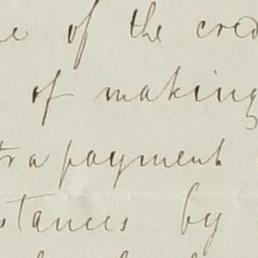 of the cred
of making
tra payment
stances by